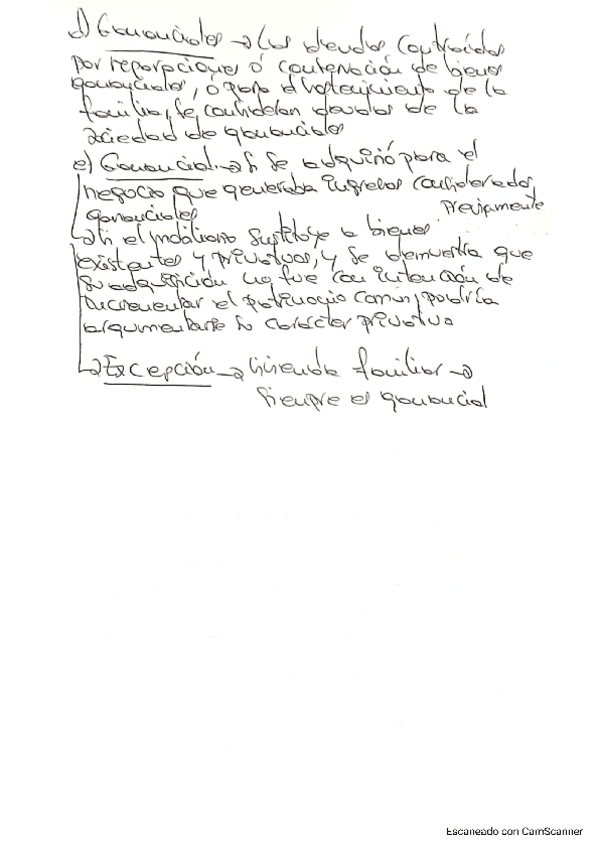 d) Gananciales → Las deudas contraídas
por reparaciones ó conservación de bienes
gananciales, ó para el sostenimiento de la
familia, se consideran deudas de la
sociedad de gananciales
e) Ganancial → Si se adquirió para el
negocio que generaba ingresos considerados
previamente
gananciales
→ Si el mobiliario sustituye a bienes
existentes y privativos, y se demuestra que
su adquisición no fue con intención de
incrementar el patrimonio común, podría
argumentarse su carácter privativo
→ Excepción → Vivienda familiar →
Siempre es ganancial
Escaneado con CamScanner